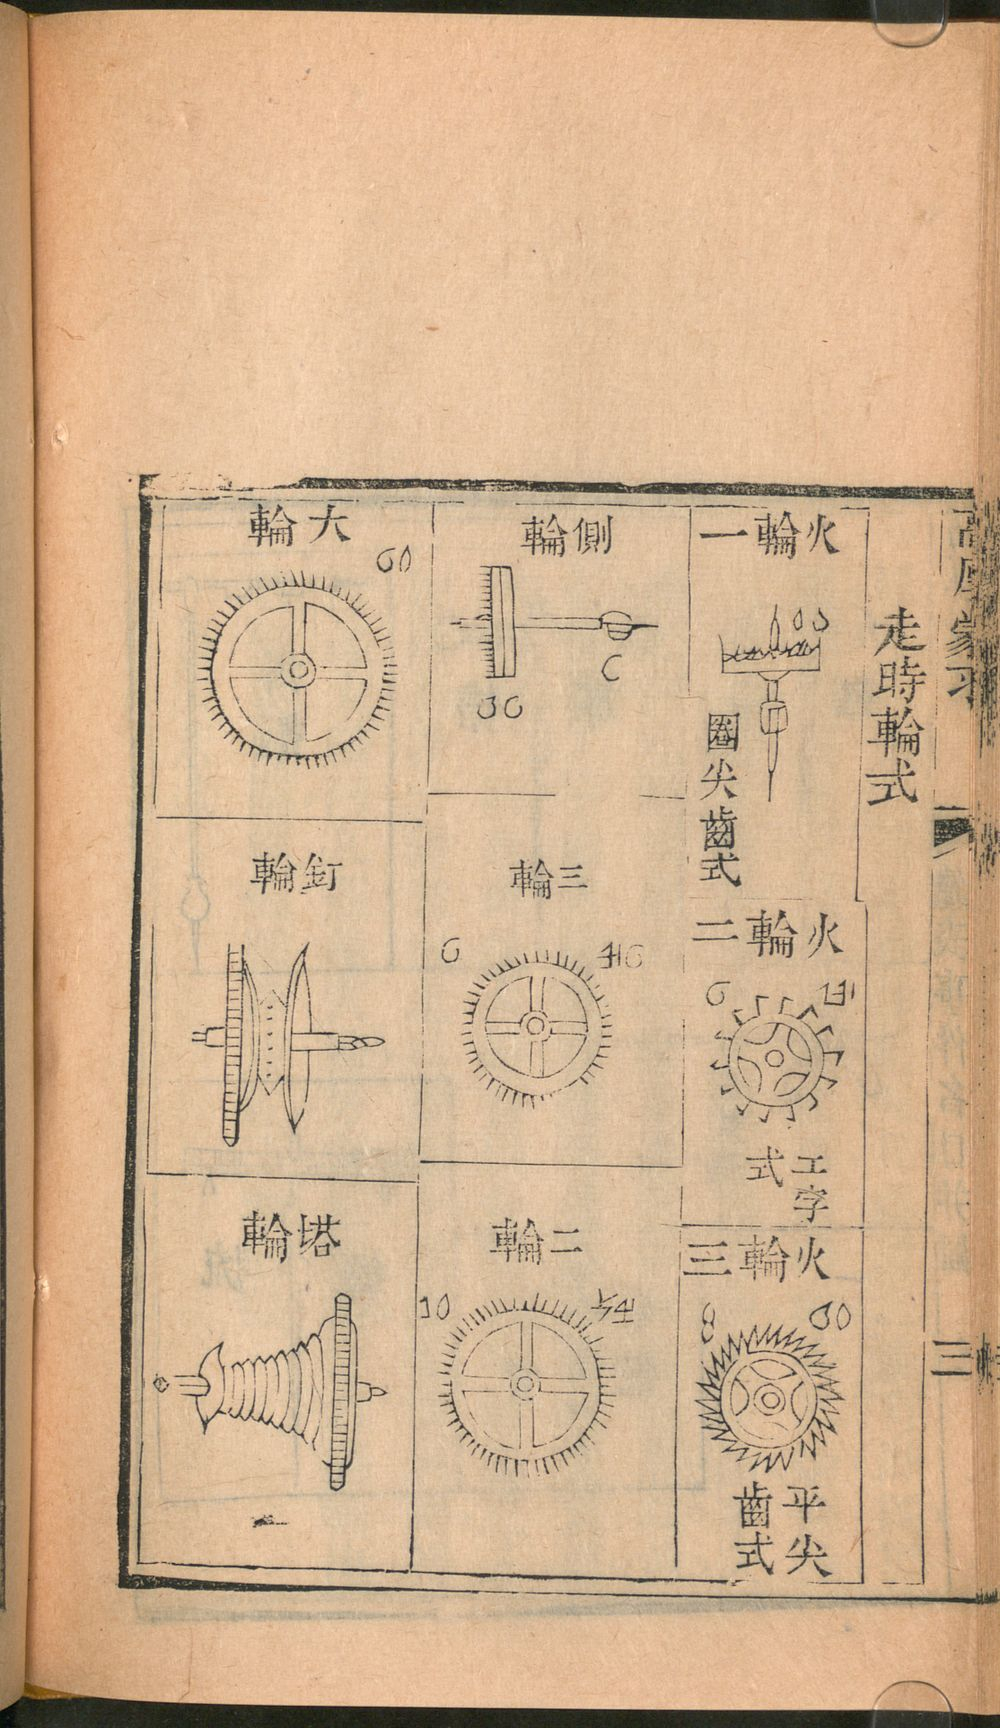 高厚蒙求
三
走時輪式
火輪一
圈尖齒式
火輪二
6
工字式
火輪三
平尖齒式
側輪
三輪
6
二輪
10
大輪
60
釘輪
塔輪